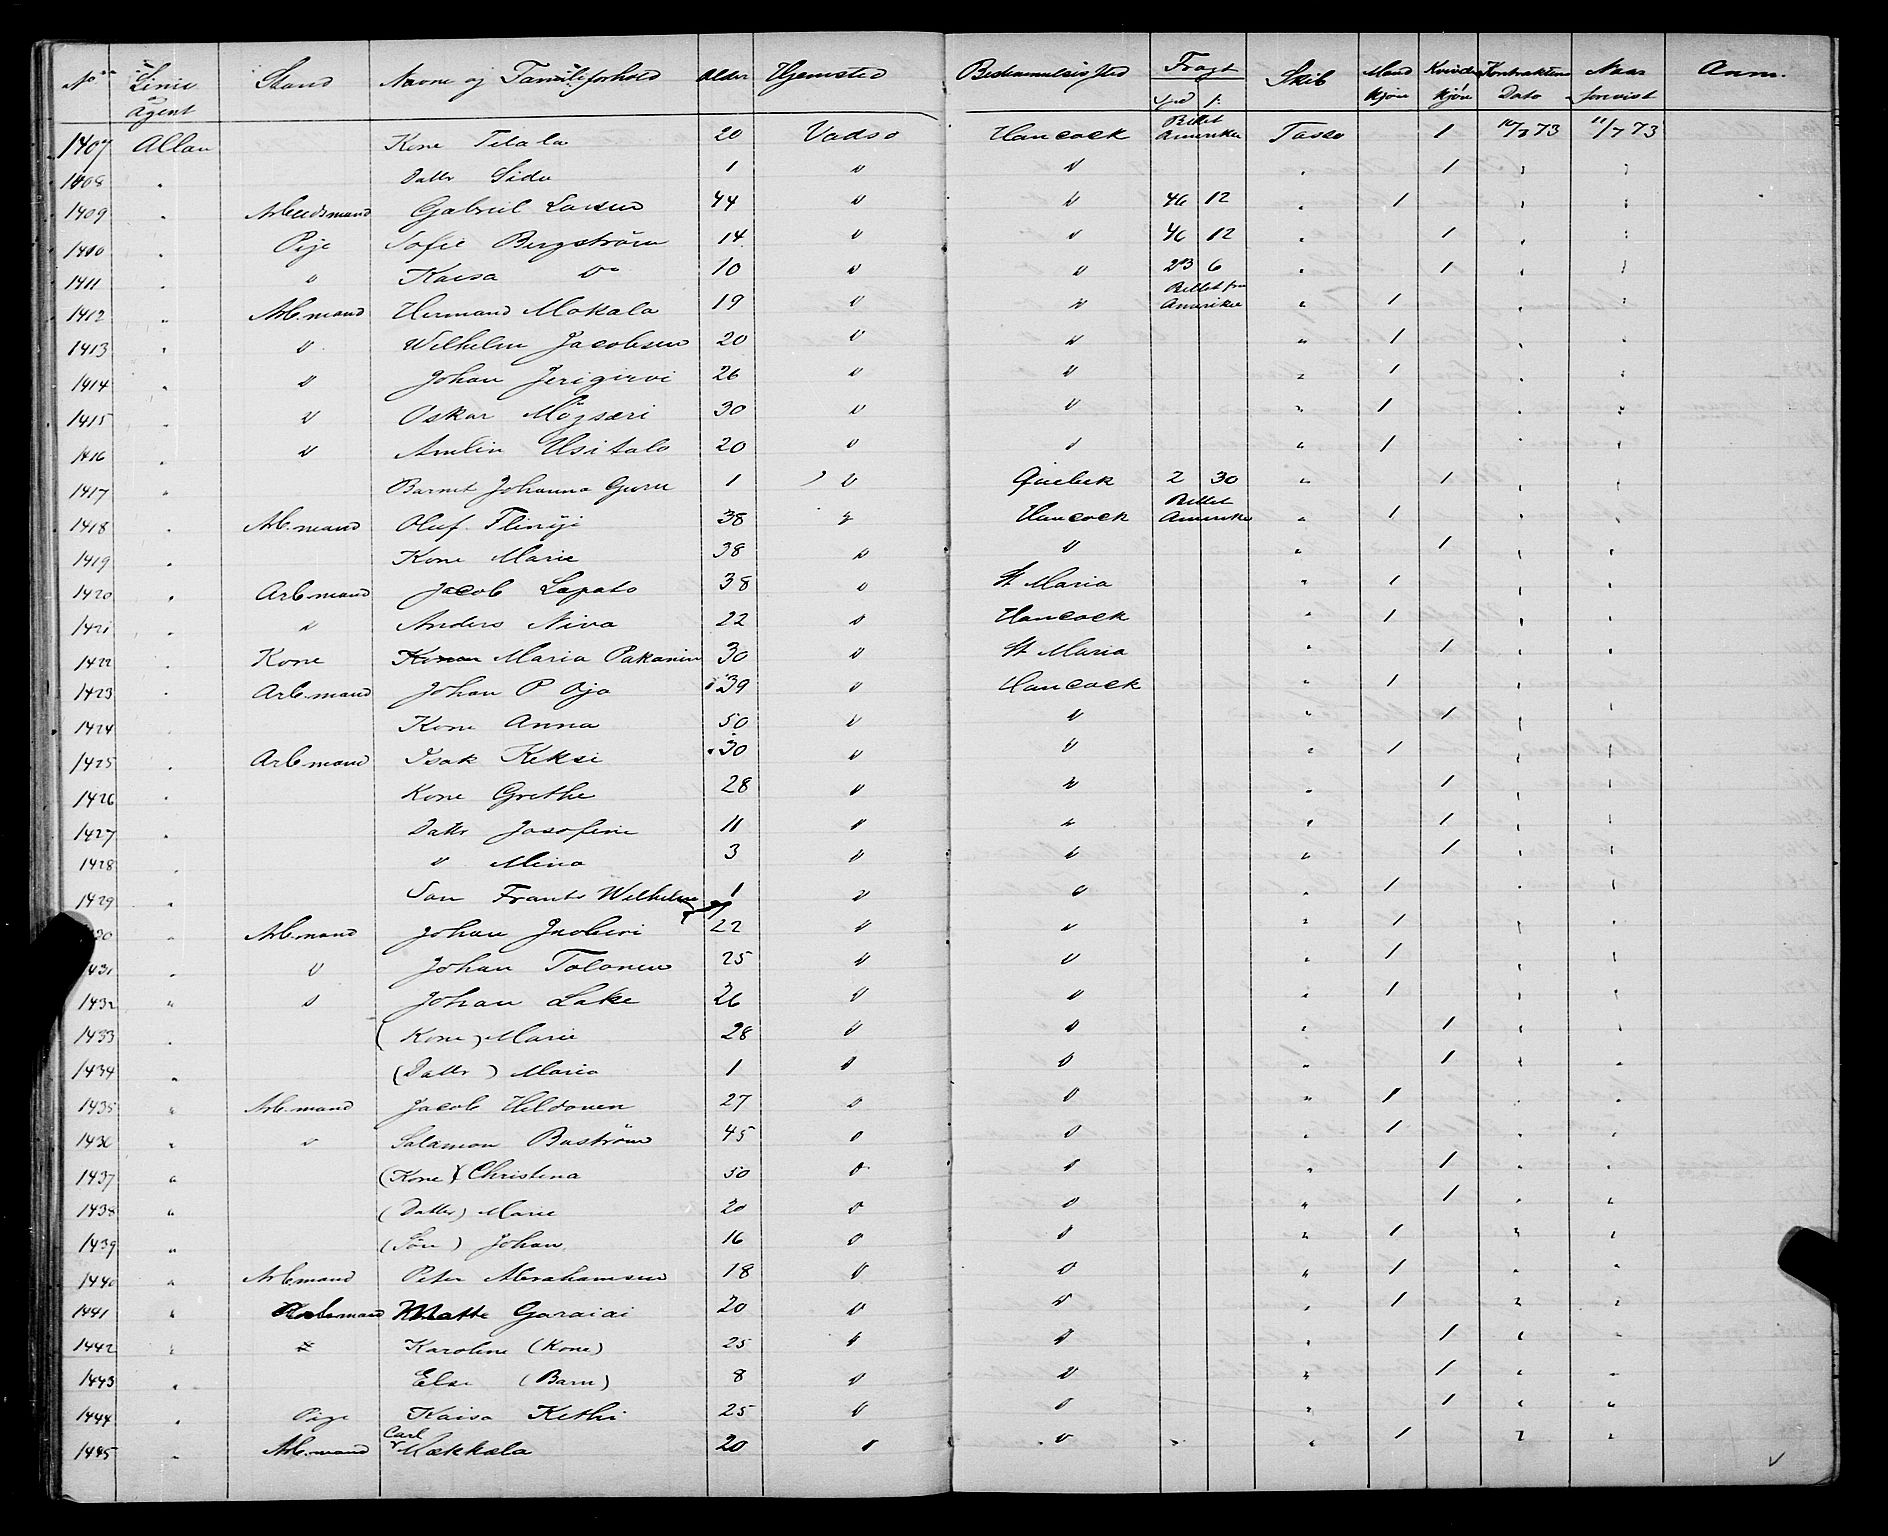 No Linie Agent Stand Navne og Familieforhold Alder Hjemsted Bestemmelsessted Fragt Spd ß Skib Mand kjøn Kvinde kjøn Kontraktens Dato Naar forevist Anm.
1407 Allan Kone Titala 20 Vadsø Hancock Billet Amerika Tasso 1 10/7 73 11/7 73
1408 " Datter Sida 1 " " " 1 " "
1409 " Arbeidsmand Gabriel Larsen 44 " " 46 12 " 1 " "
1410 " Pige Sofie Bergström 14 " " 46 12 " 1 " "
1411 " " Kaisa Do 10 " " 23 6 " 1 " "
1412 " Arb.mand Hermand Mokala 19 " " Billet fra Amerika " 1 " "
1413 " " Wilhelm Jacobsen 20 " " " 1 " "
1414 " " Johan 26 " " " 1 " "
1415 " " Oskar 30 " " " 1 " "
1416 " " Usitalo 20 " " " 1 " "
1417 " Barnet Johanna 1 " Quebek 2 30 " 1 " "
1418 " Arb.mand Oluf 38 " Hancock Billet Amerika " 1 " "
1419 " Kone Marie 38 " " " 1 " "
1420 " Arb.mand Jacob Lapato 38 " St Maria " 1 " "
1421 " " Anders Niva 22 " Hancock " 1 " "
1422 " Kone Maria Pakanin 30 " St Maria " 1 " "
1423 " Arb.mand Johan P Ojo 39 " Hancock " 1 " "
1424 Kone Anna 50 " " " 1 " "
1425 " Arb.mand Isak Keksi 30 " " " 1 " "
1426 " Kone Grethe 28 " " " 1 " "
1427 " Datter Josefine 11 " " " 1 " "
1428 " " Mina 3 " " " 1 " "
1429 " Søn Frants Wilhelm 1 " " " 1 " "
30 " Arb.mand Johan 22 " " " 1 " "
1431 " " Johan Tolonen 25 " " " 1 " "
1432 " " Johan Lake 26 " " " 1 " "
1433 " (Kone) Marie 28 " " " 1 " "
1434 " (Datter) Maria 1 " " " 1 " "
1435 " Arb.mand Jacob Hildonen 27 " " " 1 " "
1436 " " Salamon Baström 45 " " " 1 " "
1437 " (Kone) Christina 50 " " " 1 " "
1438 " (Datter) Marie 20 " " " 1 " "
1439 " (Søn) Johan 16 " " " 1 " "
1440 " Arb.mand Peter Abrahamsen 18 " " " 1 " "
1441 " Arb.mand Matte Garaiai 20 " " " 1 " "
1442 " Karoline (Kone) 25 " " " 1 " "
1443 " Else (Barn) 8 " " " 1 " "
1444 " Pige Kaisa Kethi 25 " " " 1 " "
1445 " Arb.mand Carl Mækkala 20 " " " 1 " "